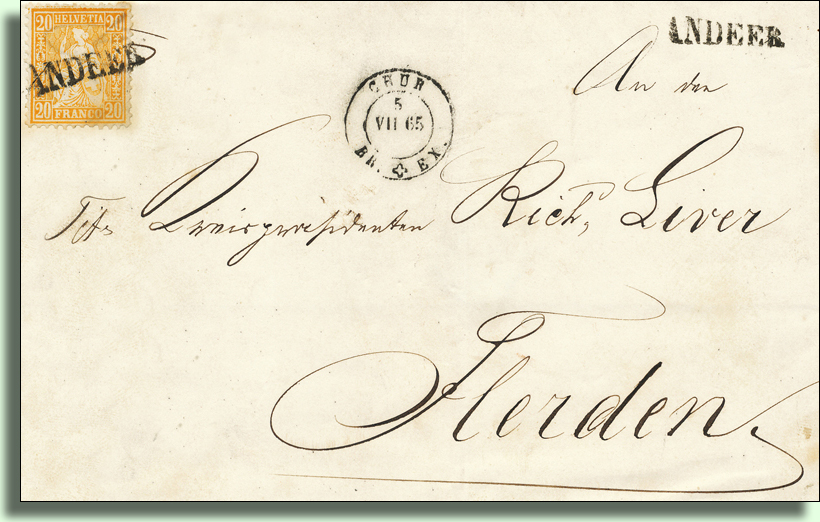 20 HELVETIA 20
ANDEER
20 FRANCO 20
ANDEER
CHUR
5
VII 65
BR. EX.
An den
Tit. Kreispräsidenten Richd, Liver
Flerden.